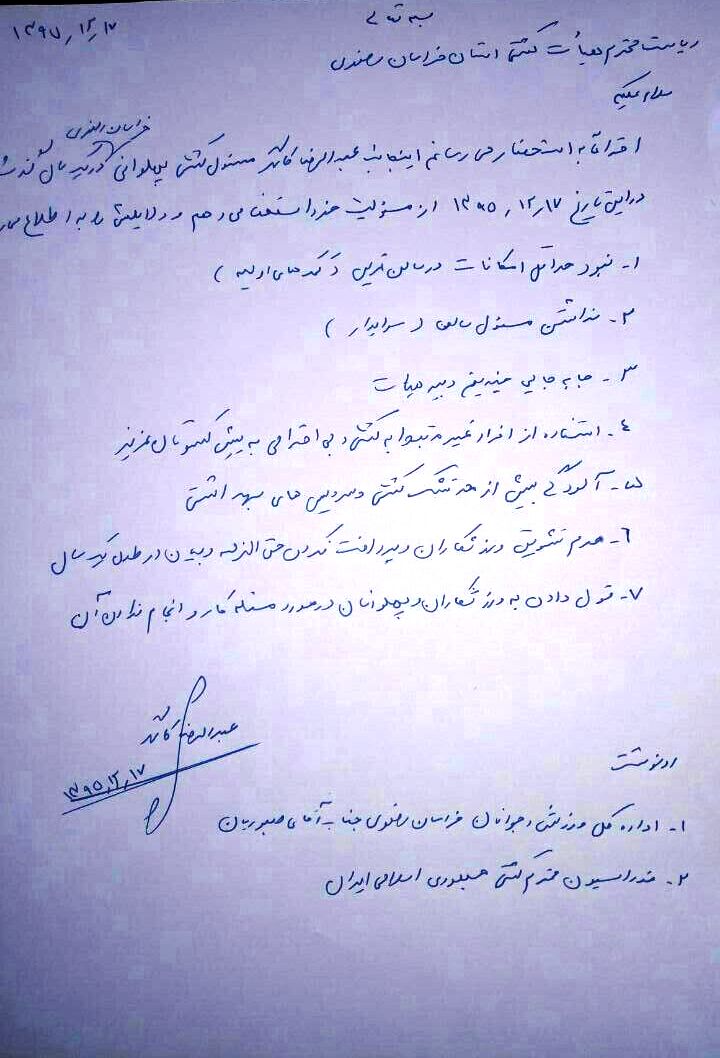 بسمه تعالی
۱۳۹۵/۱۲/۱۷
ریاست محترم هیأت کشتی استان خراسان رضوی
سلام علیکم
خراسان رضوی
احتراماً به استحضار می رسانم اینجانب عبدالرضا کارگر مسئول کشتی پهلوانی در یک سال گذشته
در این تاریخ ۱۳۹۵/۱۲/۱۷ از مسئولیت خود استعفا می دهم و دلایلش را به اطلاع
۱- نبود حداقل امکانات در سالن تمرین (کمک های اولیه)
۲- نداشتن مسئول سالن (سرایدار)
۳- جا به جایی چندین دبیر هیأت
٤- استفاده از افراد غیر مرتبط به کشتی و بی احترامی به پیش کسوتان عزیز
۵- آلودگی بیش از حد تشک کشتی و سرویس های بهداشتی
٦- عدم تشویق ورزشکاران و پرداخت نکردن حق الزحمه دبیران در طول یک سال
۷- قول دادن به ورزشکاران و پهلوانان در مورد مسئله کار و انجام ندادن آن
عبدالرضا
۱۳۹۵/۱۲/۱۷
رونوشت
۱- اداره کل ورزش و جوانان خراسان رضوی جناب آقای صبوریان
۲- فدراسیون محترم کشتی جمهوری اسلامی ایران